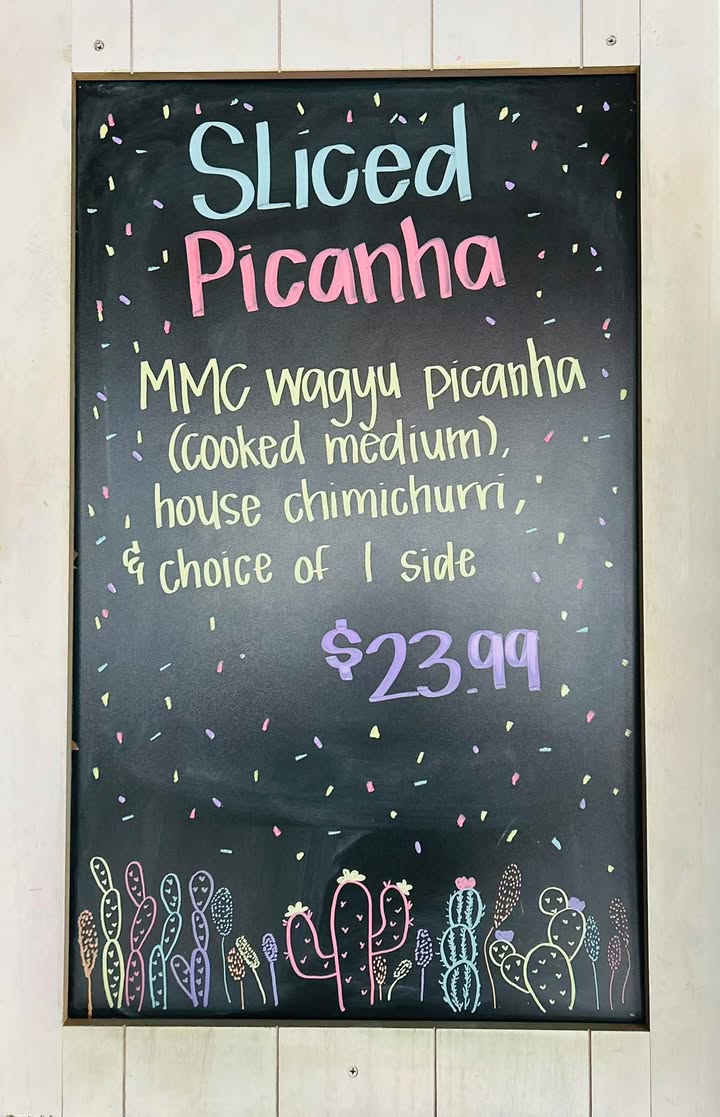 Sliced
Picanha
MMC wagyu picanha
(cooked medium),
house chimichurri,
& choice of 1 side
$23.99